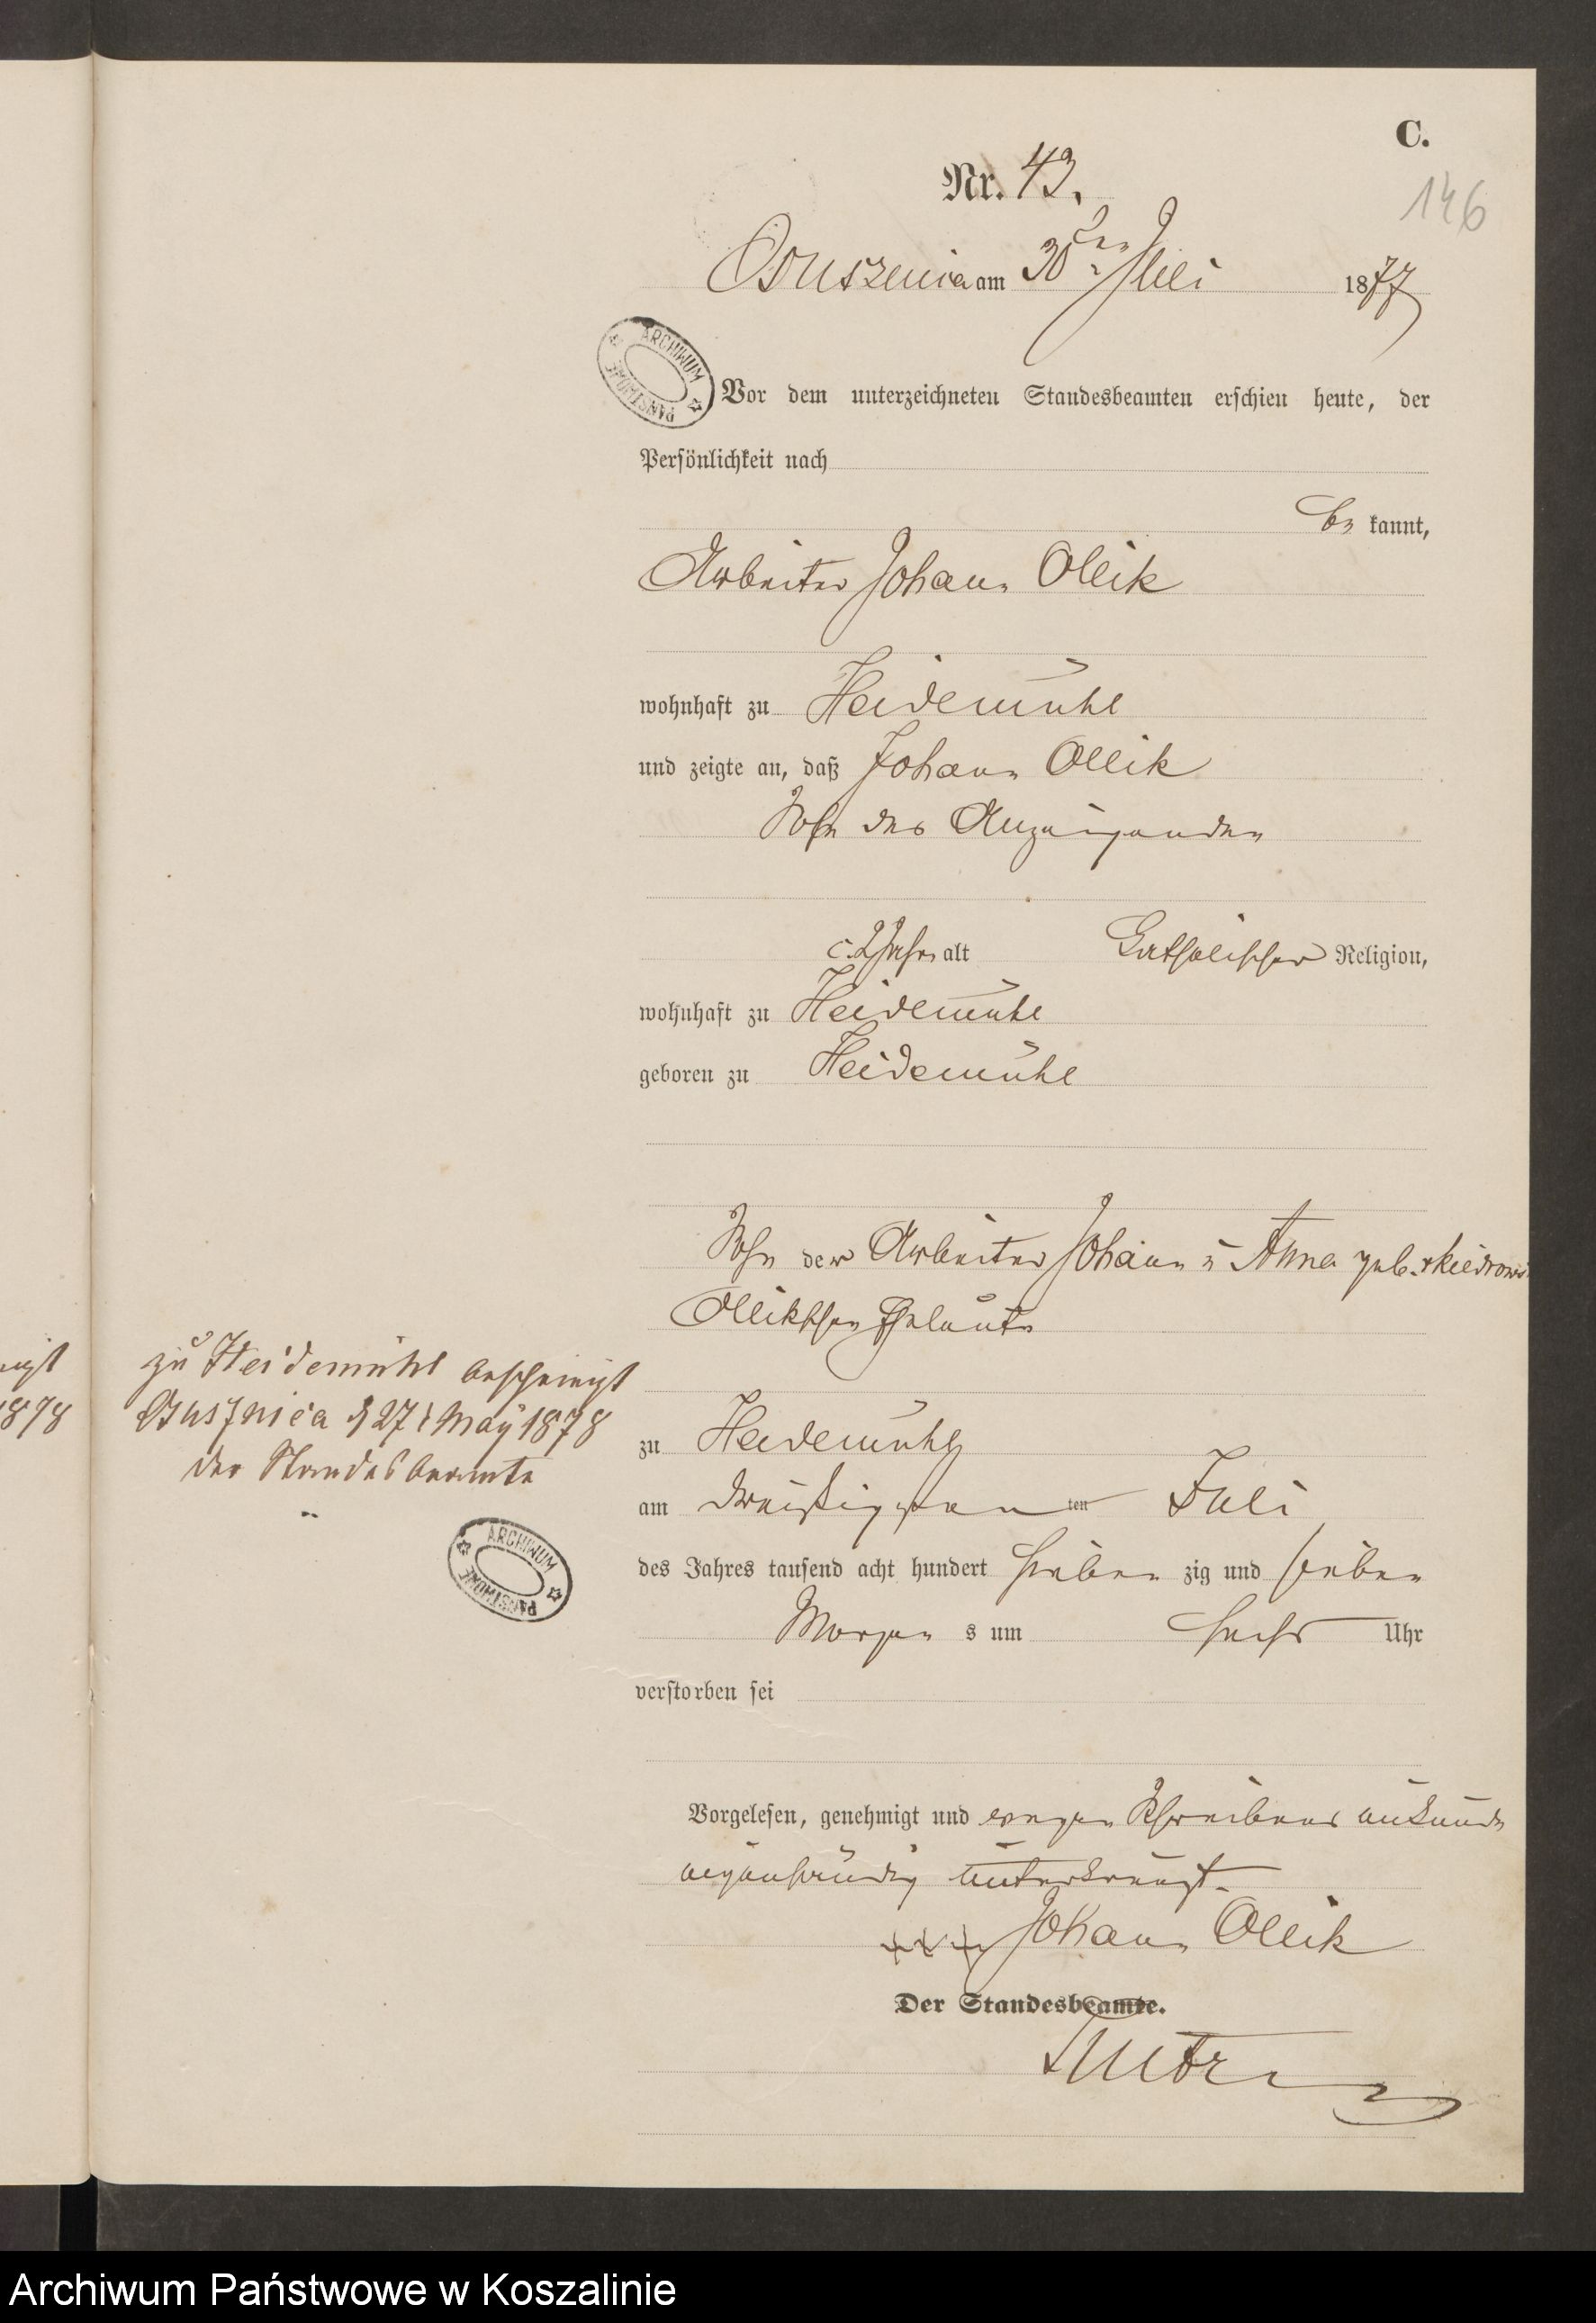 C.
Nr. 43.
146
am 30ten Juli 1877
ARCHIWUM PAŃSTWOWE
Vor dem unterzeichneten Standesbeamten erschien heute, der
Persönlichkeit nach
be kannt,
Arbeiter Johann Ollik
wohnhaft zu Heidemühl
und zeigte an, daß Johann Ollik
Sohn des Anzeigenden
c. 2 Jahr alt katholischer Religion,
wohnhaft zu Heidemühl
geboren zu Heidemühl
Sohn der Arbeiter Johann u Anna geb.
Ollikschen Eheleute
zu Heidemühl
am dreißigsten ten Juli
des Jahres tausend acht hundert sieben zig und sieben
Morgen s um sechs Uhr
verstorben sei
Vorgelesen, genehmigt und wegen Schreibens unkunde
eigenhändig unterkreuzt.
+++ Johann Ollik
Der Standesbeamte.
zu Heidemühl bescheinigt
27t May 1878
der Standesbeamte
ARCHIWUM PAŃSTWOWE
1878
Archiwum Państwowe w Koszalinie